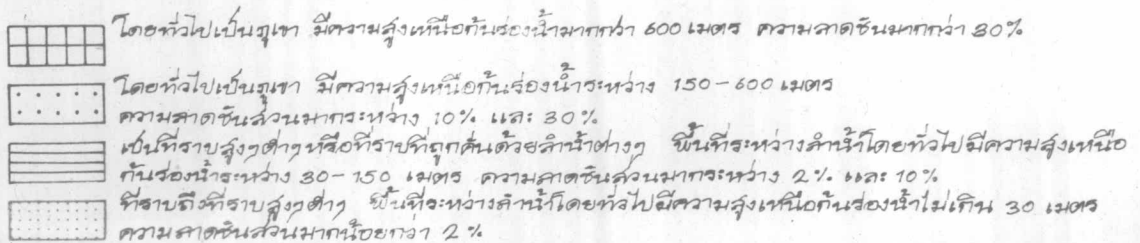 โดยทั่วไปเป็นภูเขา มีความสูงเหนือก้นร่องน้ำมากกว่า 600 เมตร ความลาดชันมากกว่า 30%
โดยทั่วไปเป็นภูเขา มีความสูงเหนือก้นร่องน้ำระหว่าง 150-600 เมตร
ความลาดชันส่วนมากระหว่าง 10% และ 30%
เป็นที่ราบสูงๆต่ำๆหรือที่ราบที่ถูกคั่นด้วยลำน้ำต่างๆ พื้นที่ระหว่างลำน้ำโดยทั่วไปมีความสูงเหนือ
ก้นร่องน้ำระหว่าง 30-150 เมตร ความลาดชันส่วนมากระหว่าง 2% และ 10%
ที่ราบถึงที่ราบสูงๆต่ำๆ พื้นที่ระหว่างลำน้ำโดยทั่วไปมีความสูงเหนือก้นร่องน้ำไม่เกิน 30 เมตร
ความลาดชันส่วนมากน้อยกว่า 2%